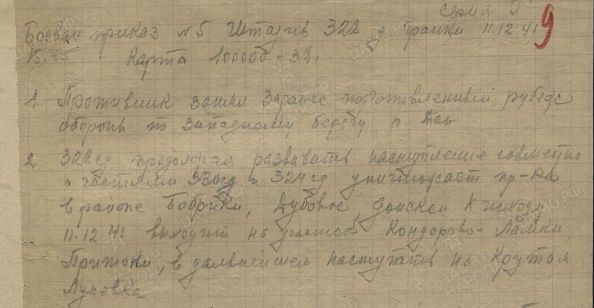 Серия Г 9
Боевой приказ № 5 Штадив 328 д. Гранки 11.12.41
Карта 100000-38г.
1 Противник занял заранее подготовленный рубеж
обороны по западному берегу р. Дон
2 328 сд продолжая развивать наступление совместно
с частями 330 сд и 324 сд уничтожает пр-ка
в районе Бобрики, Дубовое, Донской К исходу
11.12 41 выходит на участок Кондорово - Ламки,
Притоки, в дальнейшем наступать на Крутая